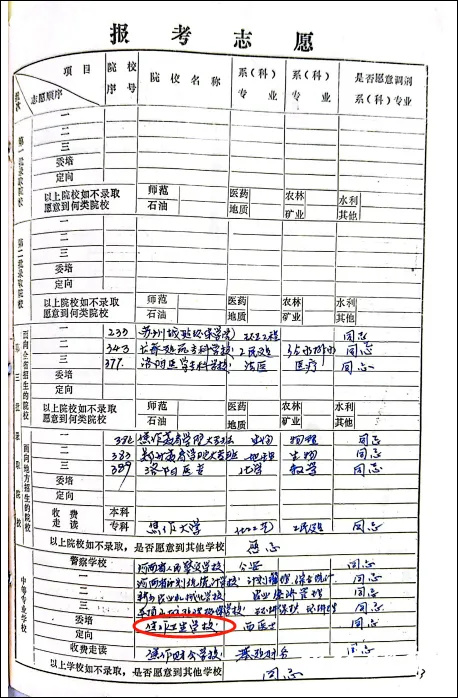 报考志愿
项目 院校序号 院校名称 系(科)专业 系(科)专业 是否愿意调剂系(科)专业
批次 志愿顺序
第一批录取院校
一
二
三
委培
定向
以上院校如不录取愿意到何类院校 师范 医药 农林 水利
石油 地质 矿业 其他
第二批录取院校
一
二
三
委培
定向
以上院校如不录取愿意到何类院校 师范 医药 农林 水利
石油 地质 矿业 其他
第三批录取院校
面向全省招生的院校
一 233 苏州城 环保学院
二 343 专科学校 同志
三 377 洛阳医学专科学校 法医 医疗 同志
委培
定向
以上院校如不录取愿意到何类院校 师范 医药 农林 水利
石油 地质 矿业 其他
面向地方招生的院校
一 382 焦作教育学院大专班 生物 物理 同志
二 383 教育学院大专班 地理 生物 同志
三 389 洛阳 化学 数学 同志
委培
定向
收费走读 本科
专科 焦作大学 同志
以上院校如不录取,是否愿意到其他学校 愿志
中等专业学校
警察学校 河南省人民警察学校 公安 同志
一 河南省计划统计学校 计划 同志
二 新乡农业机械化学校 农业经济管理 同志
三 环境保护 同志
委培 焦作卫生学校 西医士 同志
定向
收费走读 焦作财会学校 同志
以上学校如不录取,是否愿意到其他学校 同志
13